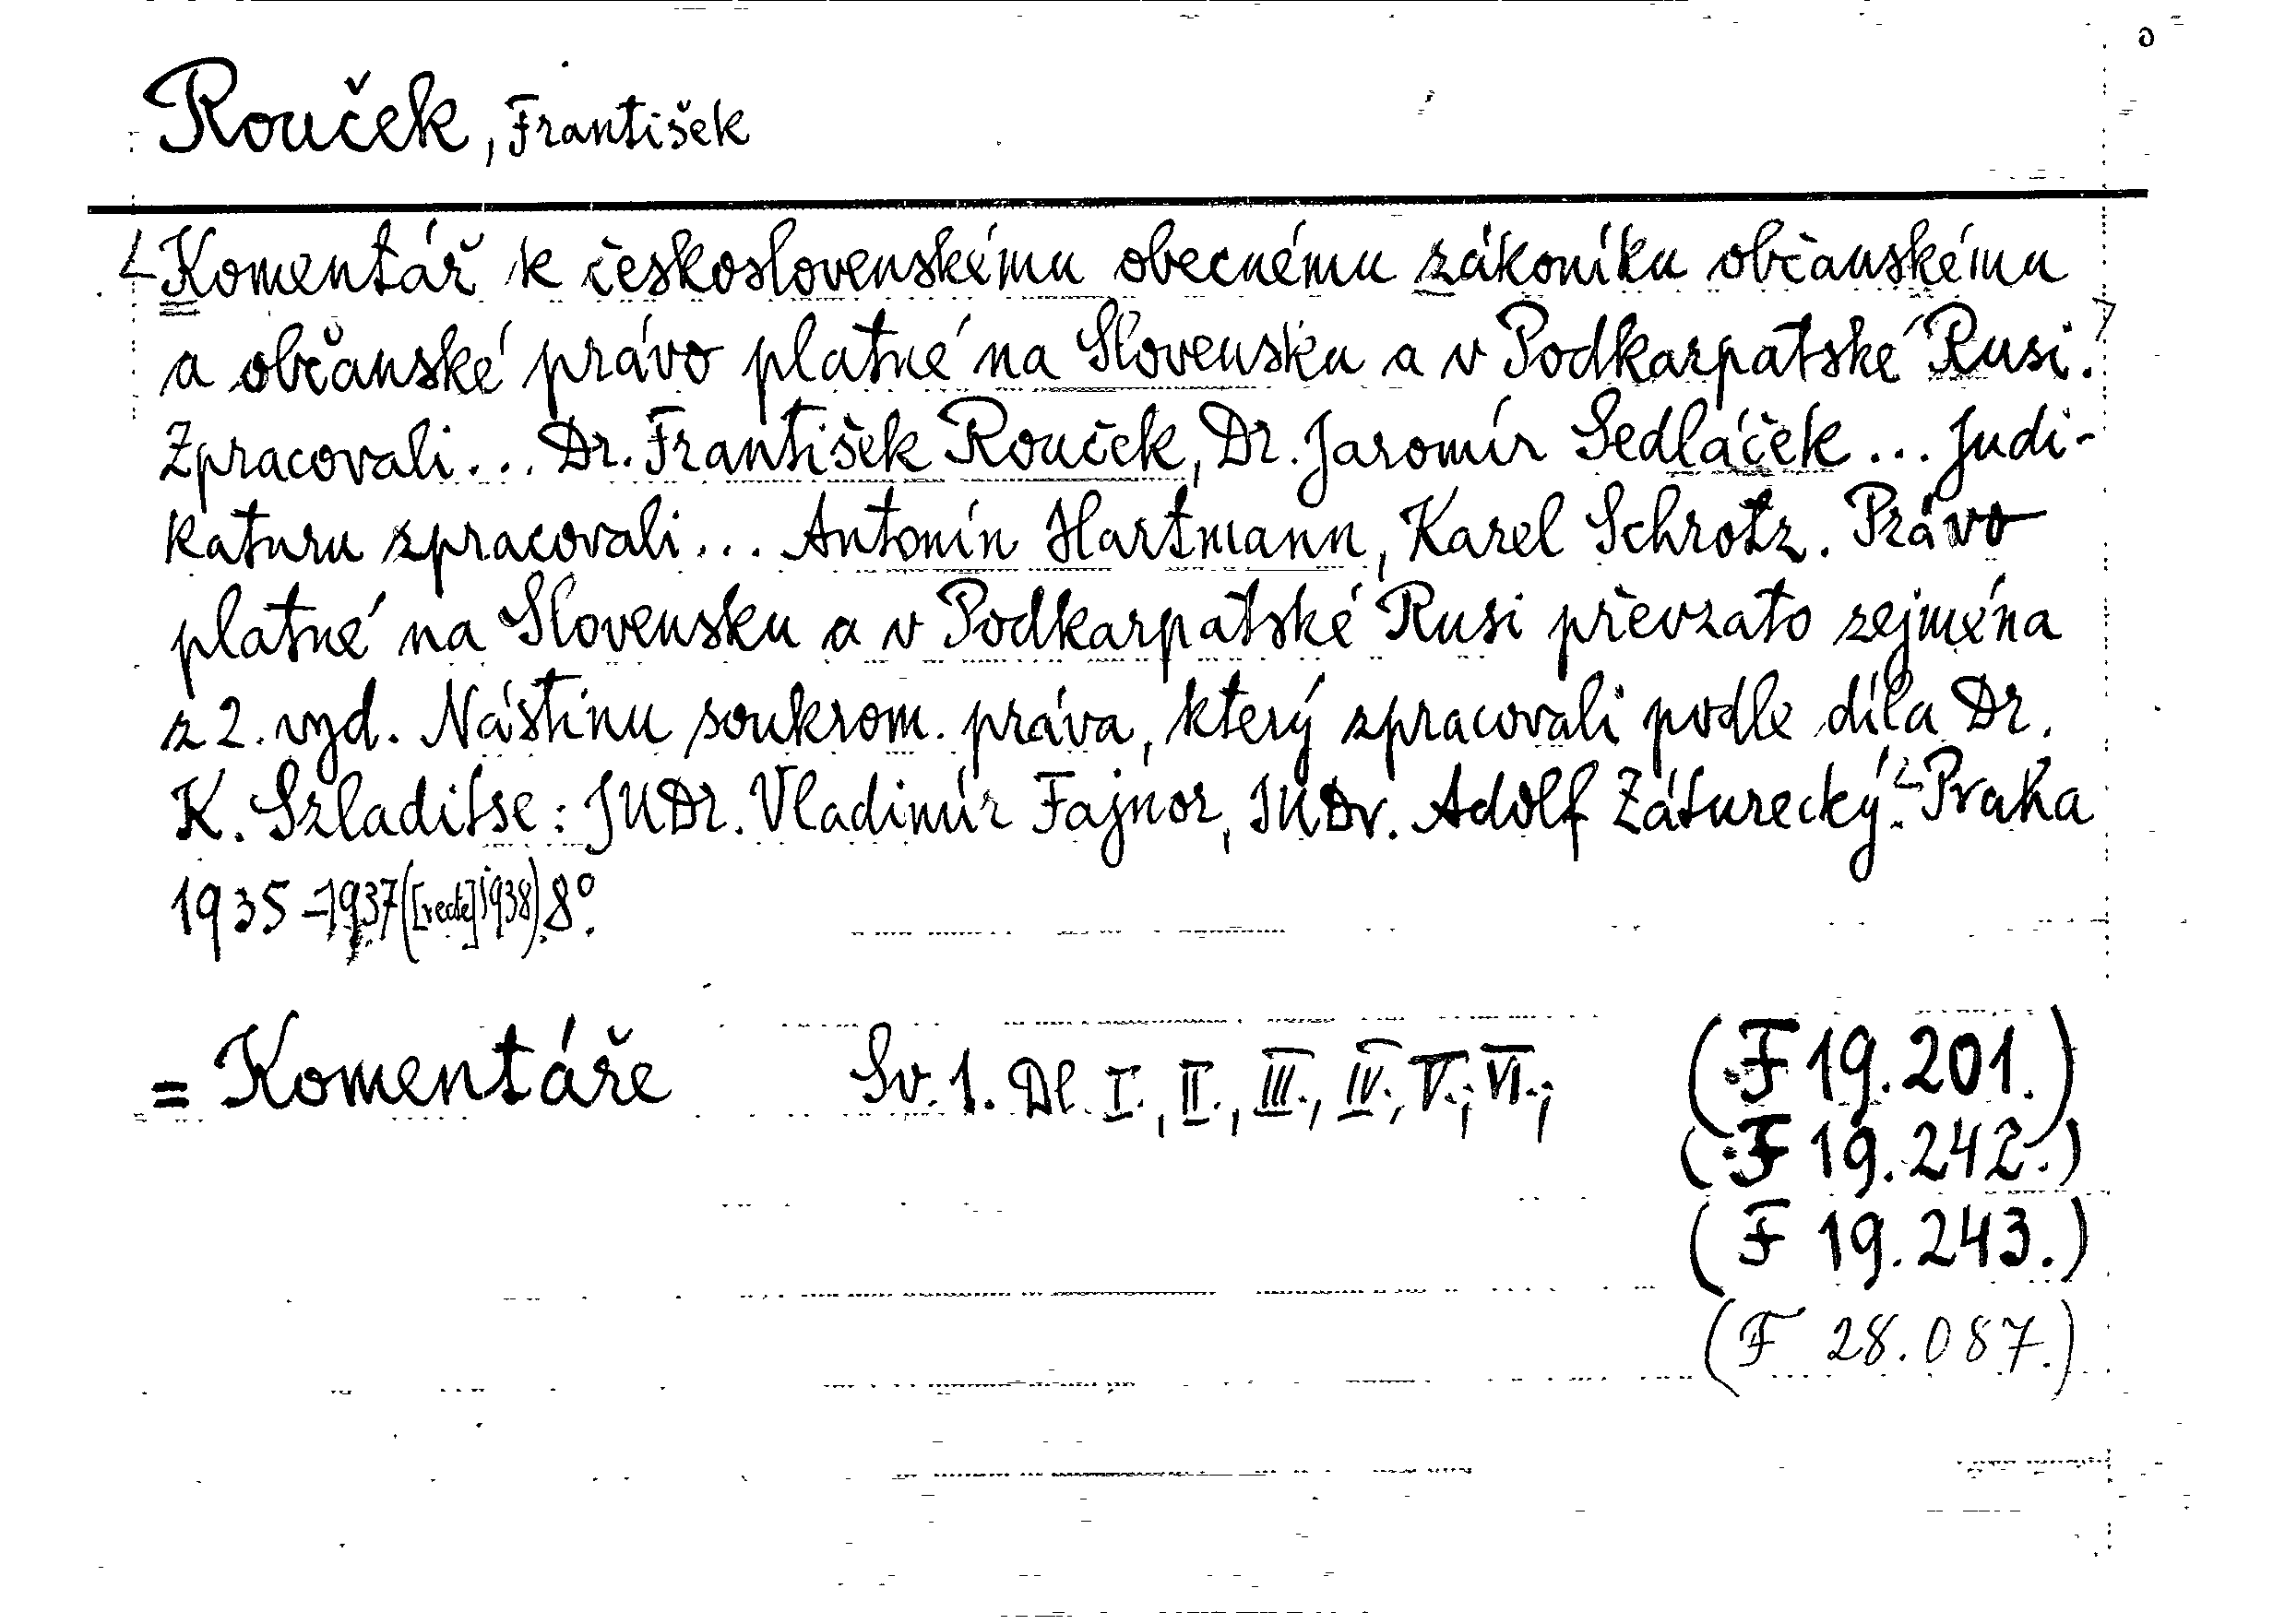 Rouček, František
Komentář k československému obecnému zákoníku občanskému
a občanské právo platné na Slovensku a v Podkarpatské Rusi.
Zpracovali... Dr. František Rouček, Dr. Jaromír Sedláček... Judi-
katuru zpracovali... Antonín Hartmann, Karel Schrotz. Právo
platné na Slovensku a v Podkarpatské Rusi převzato zejména
z 2. vyd. Nástinu soukrom. práva, který zpracovali podle díla Dr.
K. Szladitse: JUDr. Vladimír Fajnor, JUDr. Adolf Záturecký. Praha
1935-1937([recte] 1938). 8°.
= Komentáře Sv. 1. Dl. I., II., III., IV., V.; VI.; (F 19.201.)
(F 19.242.)
(F 19.243.)
(F 28.087.)